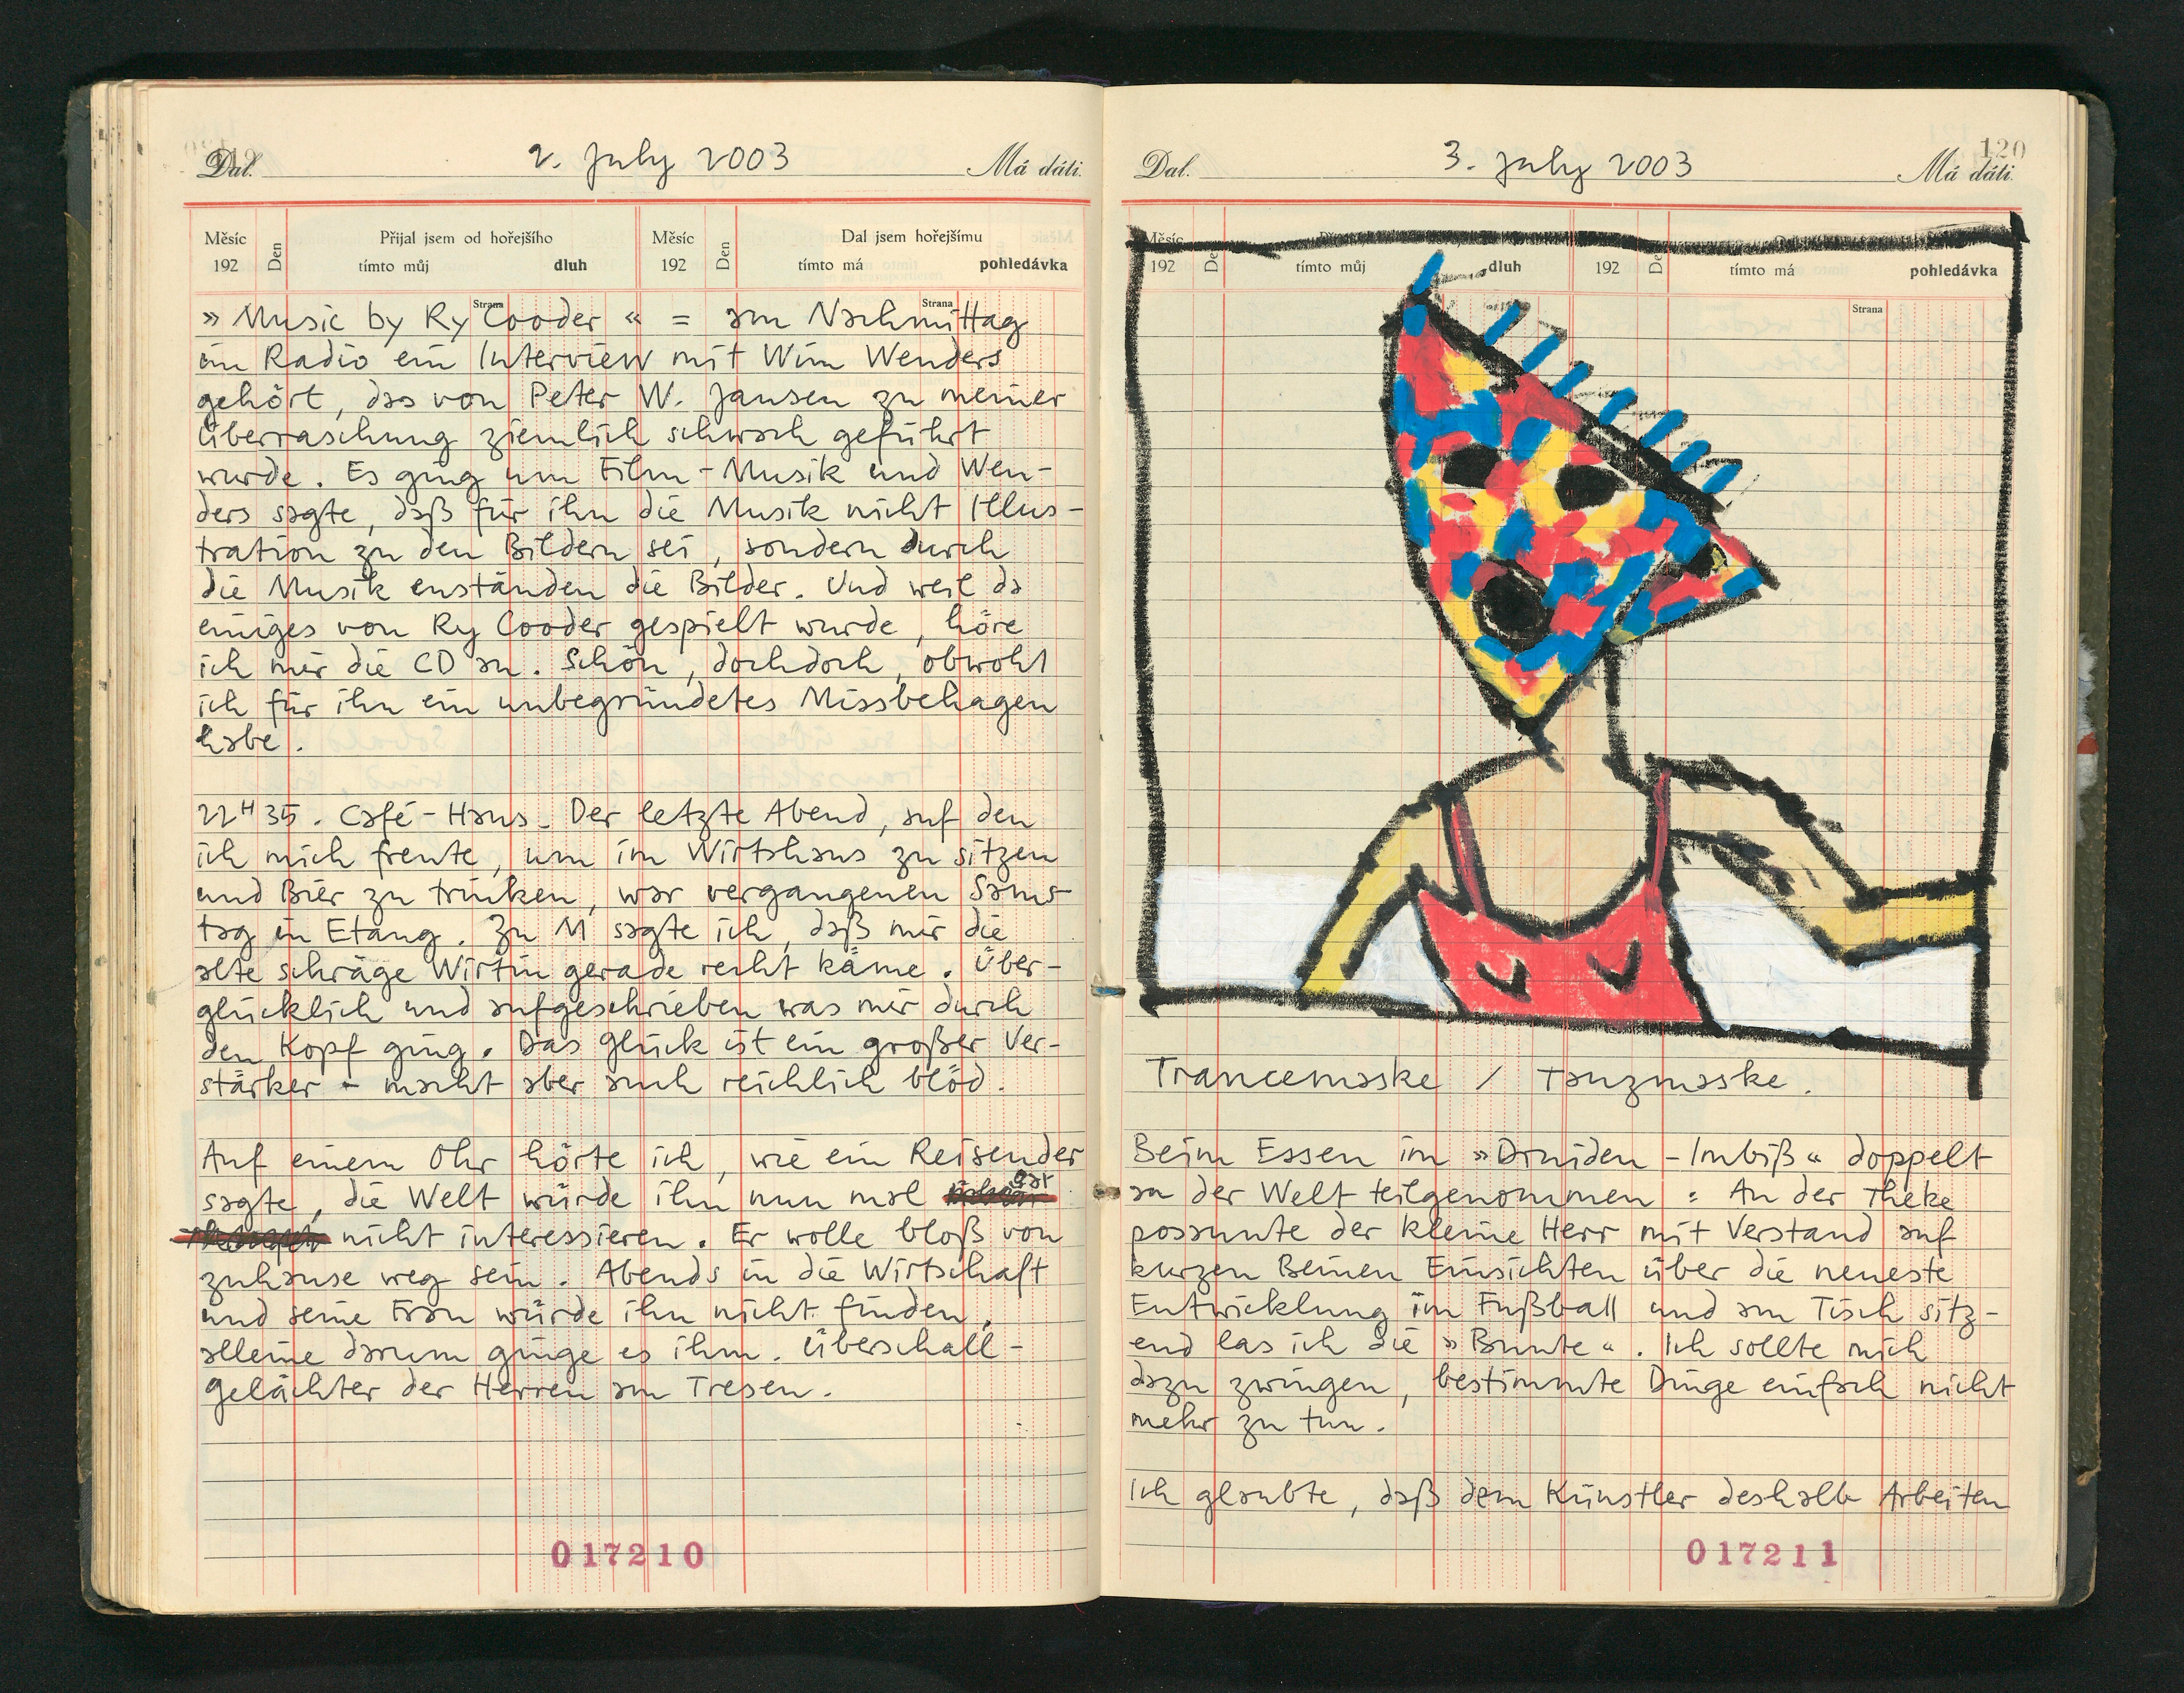 Dal. 2. July 2003 Má dáti.
Měsíc Den Přijal jsem od hořejšího Měsíc Den Dal jsem hořejšímu
192 tímto můj dluh 192 tímto má pohledávka
Strana Strana
» Music by Ry Cooder « = am Nachmittag
im Radio ein Interview mit Wim Wenders
gehört, das von Peter W. Jansen zu meiner
Überraschung ziemlich schwach geführt
wurde. Es ging um Film-Musik und Wen-
ders sagte, daß für ihn die Musik nicht Illus-
tration zu den Bildern sei, sondern durch
die Musik enständen die Bilder. Und weil da
einiges von Ry Cooder gespielt wurde, höre
ich mir die CD an. Schön, dochdoch, obwohl
ich für ihn ein unbegründetes Missbehagen
habe.
22H35. Café-Haus. Der letzte Abend, auf den
ich mich freute, um im Wirtshaus zu sitzen
und Bier zu trinken, war vergangenen Sams-
tag in Etang. Zu M sagte ich, daß mir die
alte schräge Wirtin gerade recht käme. Über-
glücklich und aufgeschrieben was mir durch
den Kopf ging. Das Glück ist ein großer Ver-
stärker - macht aber auch reichlich blöd.
Auf einem Ohr hörte ich, wie ein Reisender
sagte, die Welt würde ihn nun mal gar
nicht interessieren. Er wolle bloß von
zuhause weg sein. Abends in die Wirtschaft
und seine Frau würde ihn nicht finden,
alleine darum ginge es ihm. Überschall-
gelächter der Herren am Tresen.
017210
Dal. 3. July 2003 120 Má dáti.
Měsíc
192 tímto můj dluh 192 tímto má pohledávka
Strana
Trancemaske / Tanzmaske.
Beim Essen im »Druiden-Imbiß« doppelt
an der Welt teilgenommen: An der Theke
posaunte der kleine Herr mit Verstand auf
kurzen Beinen Einsichten über die neueste
Entwicklung im Fußball und am Tisch sitz-
end las ich die »Bunte«. Ich sollte mich
dazu zwingen, bestimmte Dinge einfach nicht
mehr zu tun.
Ich glaubte, daß dem Künstler deshalb Arbeiten
017211